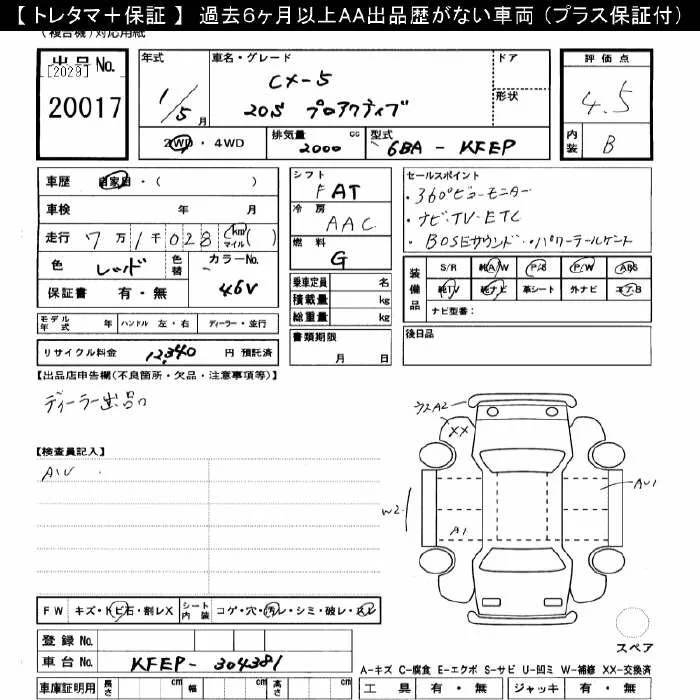 【 トレタマ＋保証 】 過去6ヶ月以上AA出品歴がない車両（プラス保証付）
（複合機）対応用紙
出品No.
[2029]
20017
年式 1/5 月
車名・グレード
CX-5
20S プロアクティブ
ドア
形状
評価点
4.5
内装 B
2WD ・ 4WD
排気量 2000 cc
型式 6BA - KFEP
車歴 自家用・（ ）
車検 年 月
走行 7万1千028 km マイル（ ）
色 レッド 色替 カラーNo. 46V
保証書 有・無
シフト FAT
冷房 AAC
燃料 G
乗車定員 名
積載量 kg
総重量 kg
書類期限
月 日
セールスポイント
・360°ビューモニター
・ナビ・TV・ETC
・BOSEサウンド・パワーテールゲート
装備品
S/R 純A/W P/S P/W ABS
純TV 純ナビ 革シート 外ナビ エアB
ナビ型番：
後日品
モデル年式 年 ハンドル 左・右 ディーラー・並行
リサイクル料金 12,340 円 預託済
【出品店申告欄(不良箇所・欠品・注意事項等)】
ディーラー出品
【検査員記入】
AW
XX
W2
A1
AU1
FW キズ・トビ石・割レX シート内装 コゲ・穴・汚レ・シミ・破レ・スレ
登録 No.
車台 No. KFEP- 304381
車庫証明用 長さ cm 幅 cm 高さ cm
スペア
A-キズ C-腐食 E-エクボ S-サビ U-凹ミ W-補修 XX-交換済
工具 有・無 ジャッキ 有・無